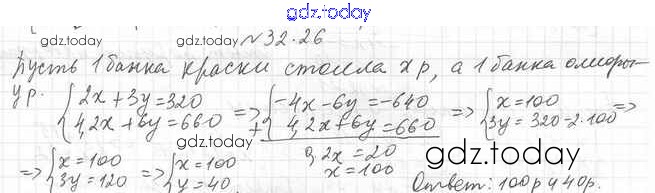 gdz.today
gdz.today
gdz.today
№32.26
Пусть 1 банка краски стоила x р, а 1 банка олифы -
y р. {2x + 3y = 320 => {-4x - 6y = -640 => {x = 100 =>
{4,2x + 6y = 660 + {4,2x + 6y = 660 {3y = 320 - 2·100
0,2x = 20
x = 100
=> {x = 100 => {x = 100
{3y = 120 {y = 40
gdz.today
gdz.today
Ответ: 100р и 40р.